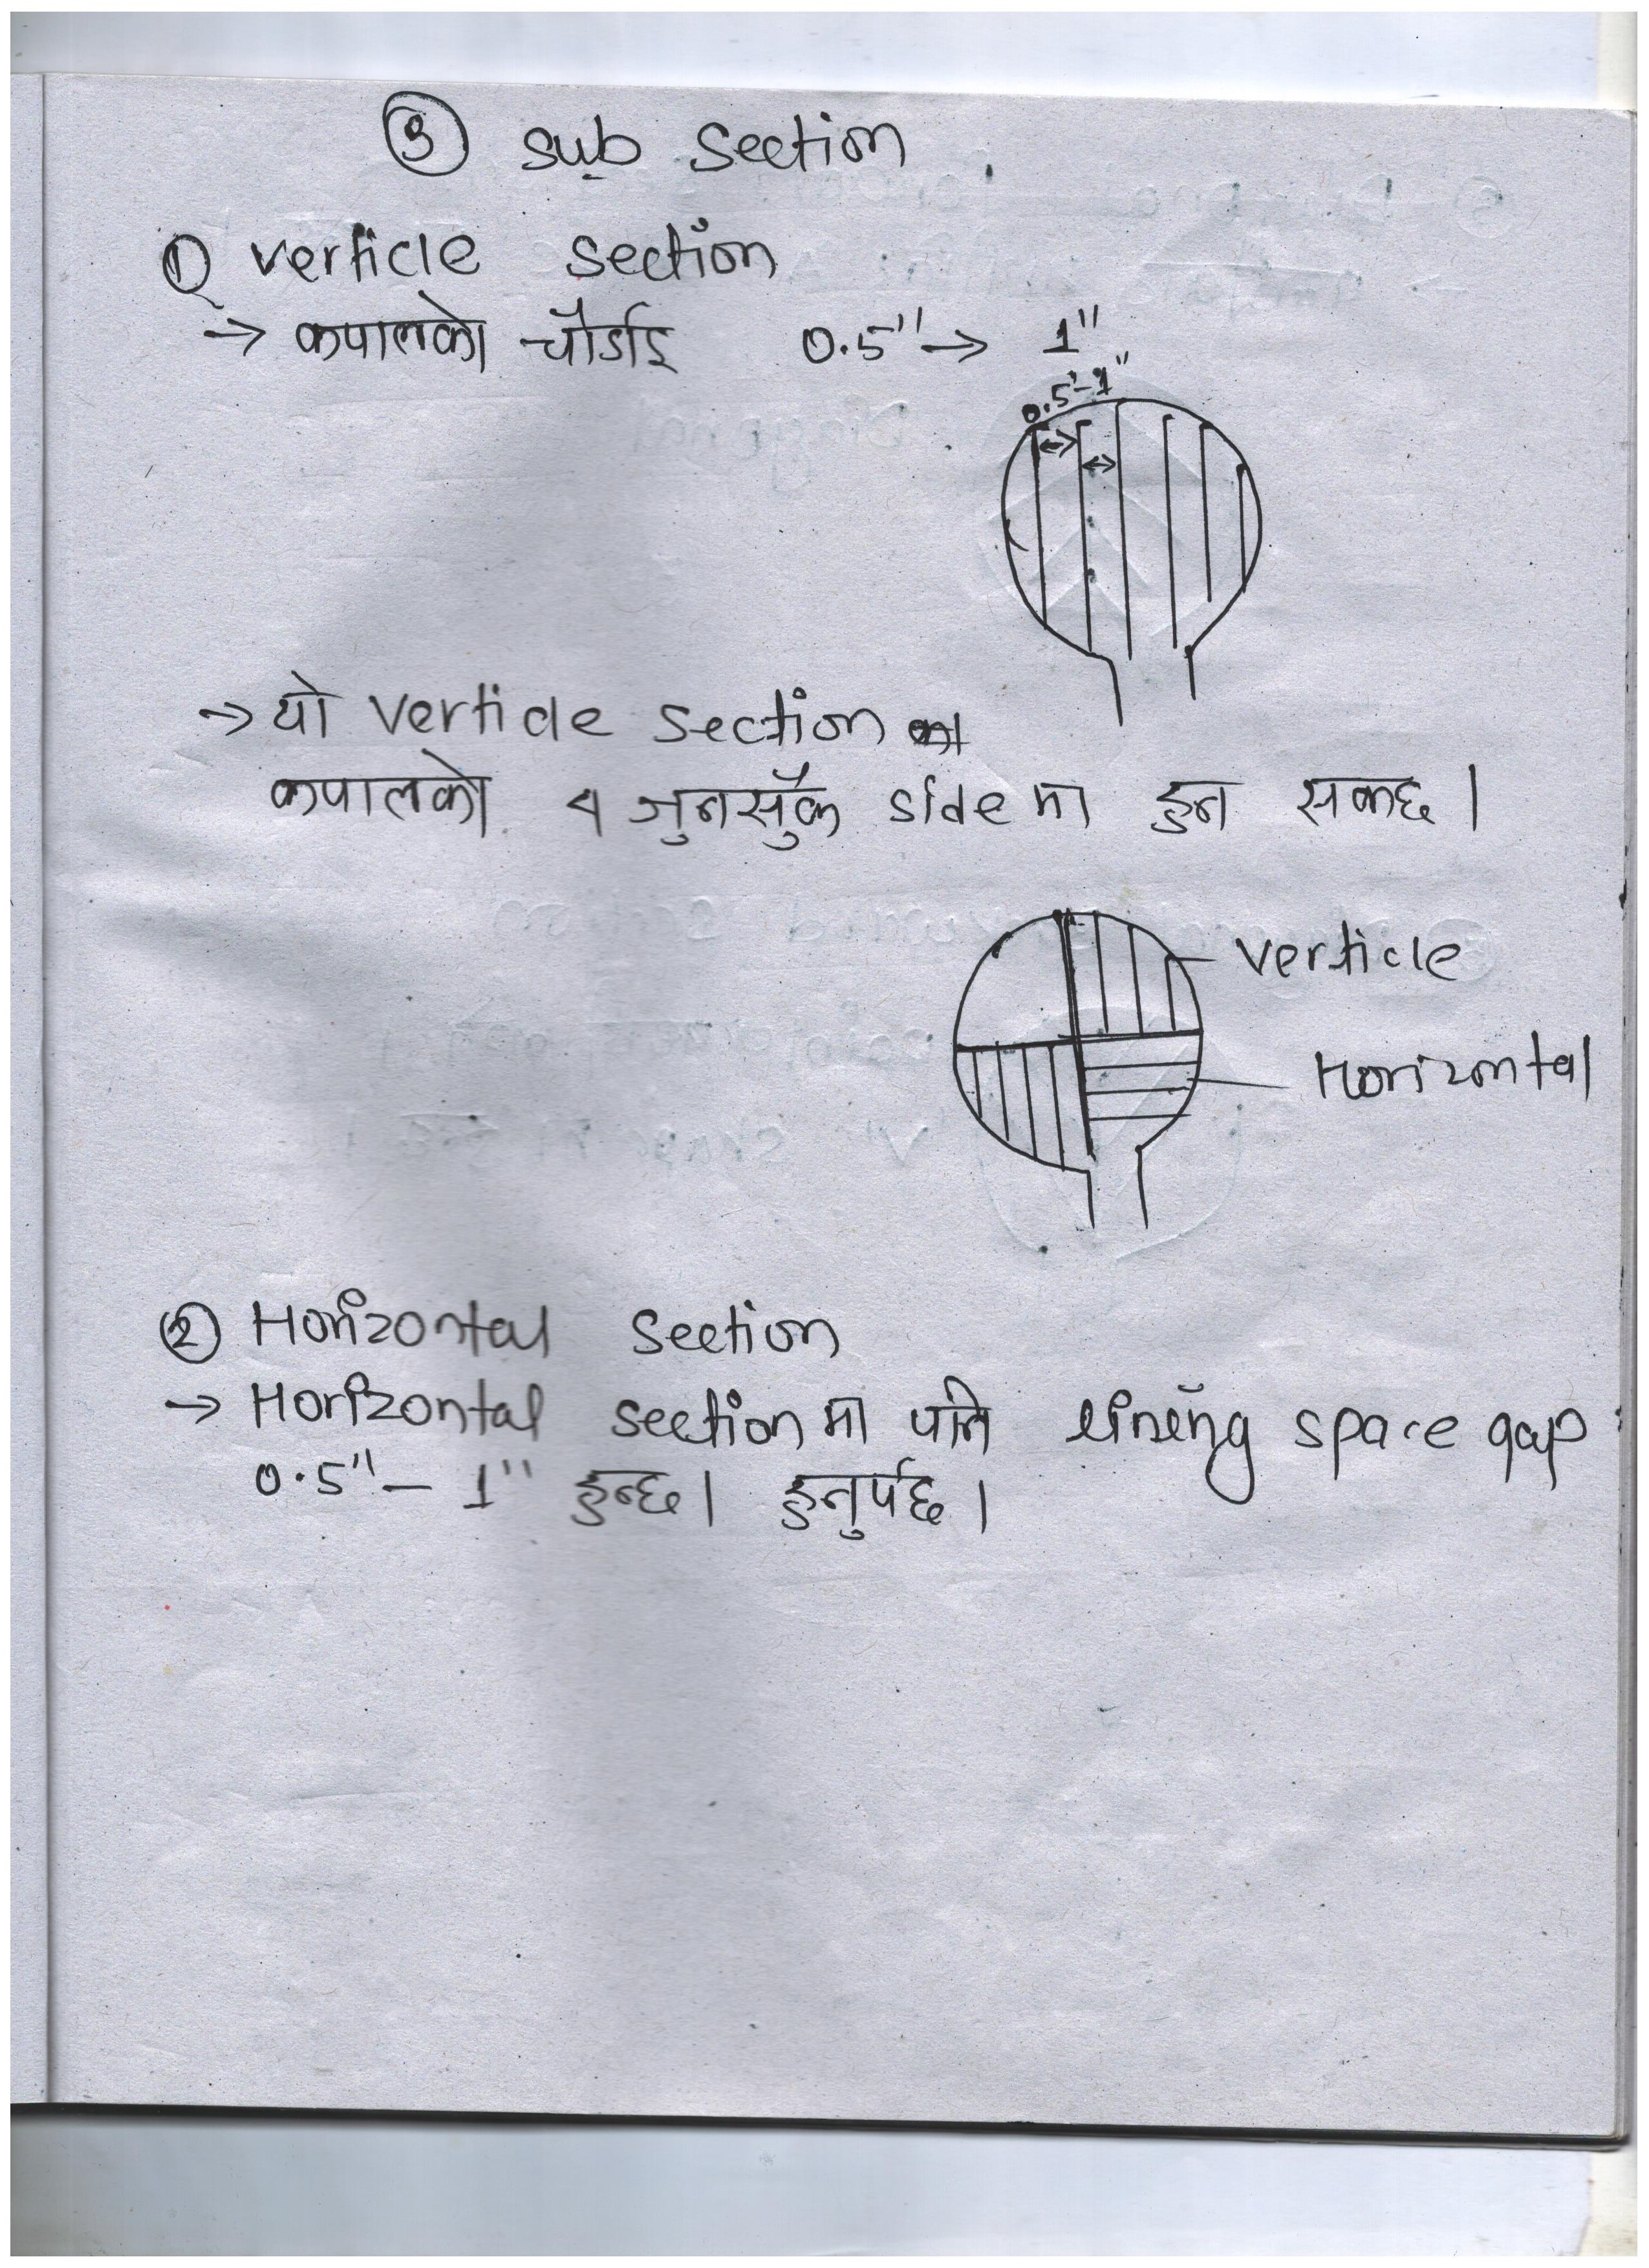 ③ sub section
① verticle section
→ कपालको चौडाई 0.5" → 1"
0.5'-1"
→ यो verticle section का
कपालको ४ जुनसुकै side मा हुन सक्छ।
verticle
Horizontal
② Horizontal section
→ Horizontal section मा पनि lining space gap
0.5" – 1" हुन्छ। हुनुपर्छ।